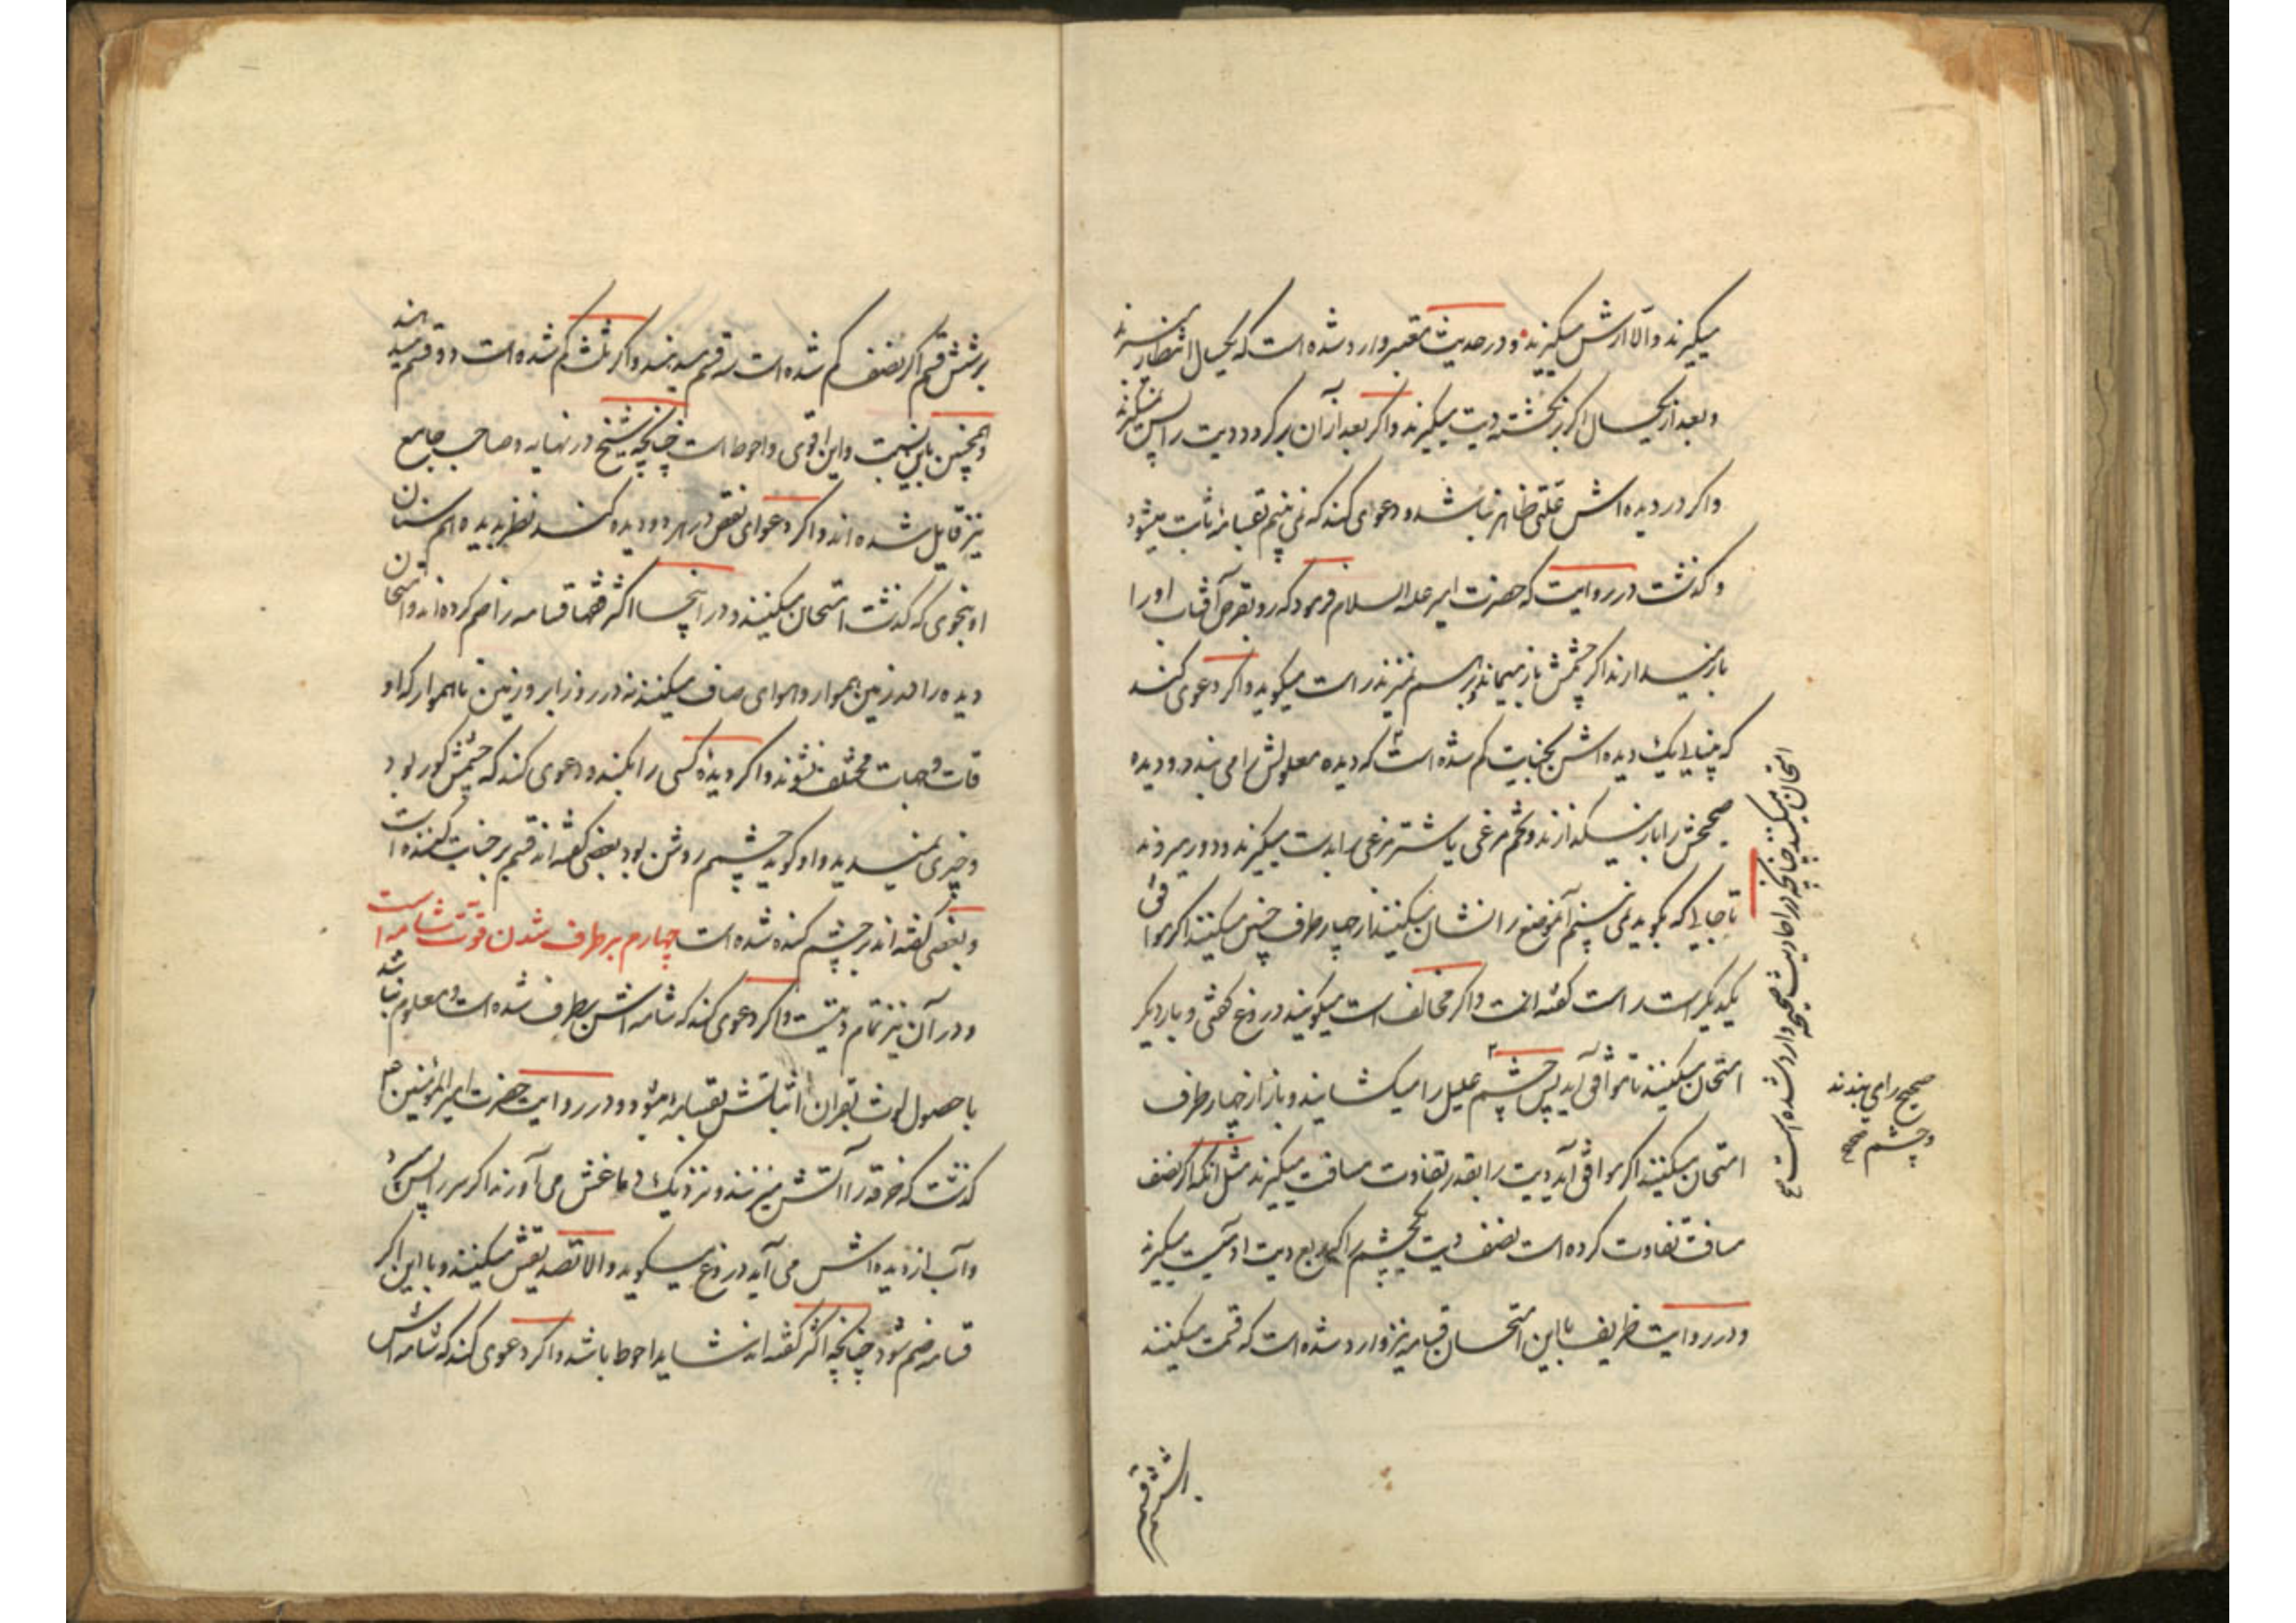 میگیرند والا ارش میگیرند و در حدیث معتبر وارد شده است که یکسال انتظار میبرند
و بعد از یکسال اگر برنگشته دیت میگیرند و اگر بعد از آن برگردد دیت را پس نمیگیرند
و اگر در دیده اش علتی ظاهر نباشد و دعوی کند که نمی بینم بقسامه ثابت میشود
و گذشت در روایت که حضرت امیر علیه السلام فرمود که رو بقرص آفتاب او را
باز میدارند اگر چشمش باز میماند و برهم نمیزند راست میگوید و اگر دعوی کند
که بینایی یک دیده اش بجنایت کم شده است که دیده معلولش را می بندد و دیده
صحیحش را باز میگذارند و تخم مرغی یا شترمرغی را بدست میگیرند و دور میروند
تا جایی که بگوید نمی بینم آنموضع را نشان میکنند از چهار طرف چنین میکنند اگر موافق
یکدیگر است راست گفته است و اگر مخالف است میگویند دروغ گفتی و بار دیگر
امتحان میکنند تا موافق آید پس چشم علیل را میگشایند و باز از چهار طرف
امتحان میکنند اگر موافق آید دیت را بقدر تفاوت مسافت میگیرند مثل آنکه اگر نصف
مسافت تفاوت کرده است نصف دیت یکچشم را که ربع دیت آدمیست میگیرند
و در روایت ظریف با این امتحان قسامه نیز وارد شده است که قسمت میکنند
امتحان میکنند چنانچه در احادیث صحیحه وارد شده است
صحیح را می بندند
و چشم
بر شش قسم
بر شش قسم اگر نصف کم شده است سه قسم میدهند و اگر ثلث کم شده است دو قسم میدهند
و همچنین باین نسبت و این اقوی و احوط است چنانچه شیخ در نهایه و صاحب جامع
نیز قایل شده اند و اگر دعوای نقص در هر دو دیده کند نظر بدیده همسنان
او بنحوی که گذشت امتحان میکنند و در اینجا اکثر فقها قسامه را ضم کرده اند و امتحان
دیده را در زمین هموار و هوای صاف میکنند نه در روز ابر و زمین ناهموار که او
قات و جهات مختلف نشوند و اگر دیده کسی را بکنند و دعوی کند که چشمش کور بود
و چیزی نمیدید و او گوید چشم روشن بود بعضی گفته اند قسم بر جنایت کننده است
و بعضی گفته اند بر چشم کنده شده است چهارم برطرف شدن قوت شامه است
و در آن نیز تمام دیتست و اگر دعوی کند که شامه اش برطرف شده است و معلوم نباشد
با حصول لوث بقران اثباتش بقسامه میشود و در روایت حضرت امیر المؤمنین ع
گذشت که خرقه را آتش میزنند و نزدیک دماغش می آورند اگر سر را پس برد
و آب از دیده اش می آید دروغ میگوید والا تصدیقش میکنند و با این اگر
قسامه ضم شود چنانچه اکثر گفته اند شاید احوط باشد و اگر دعوی کند که شامه اش